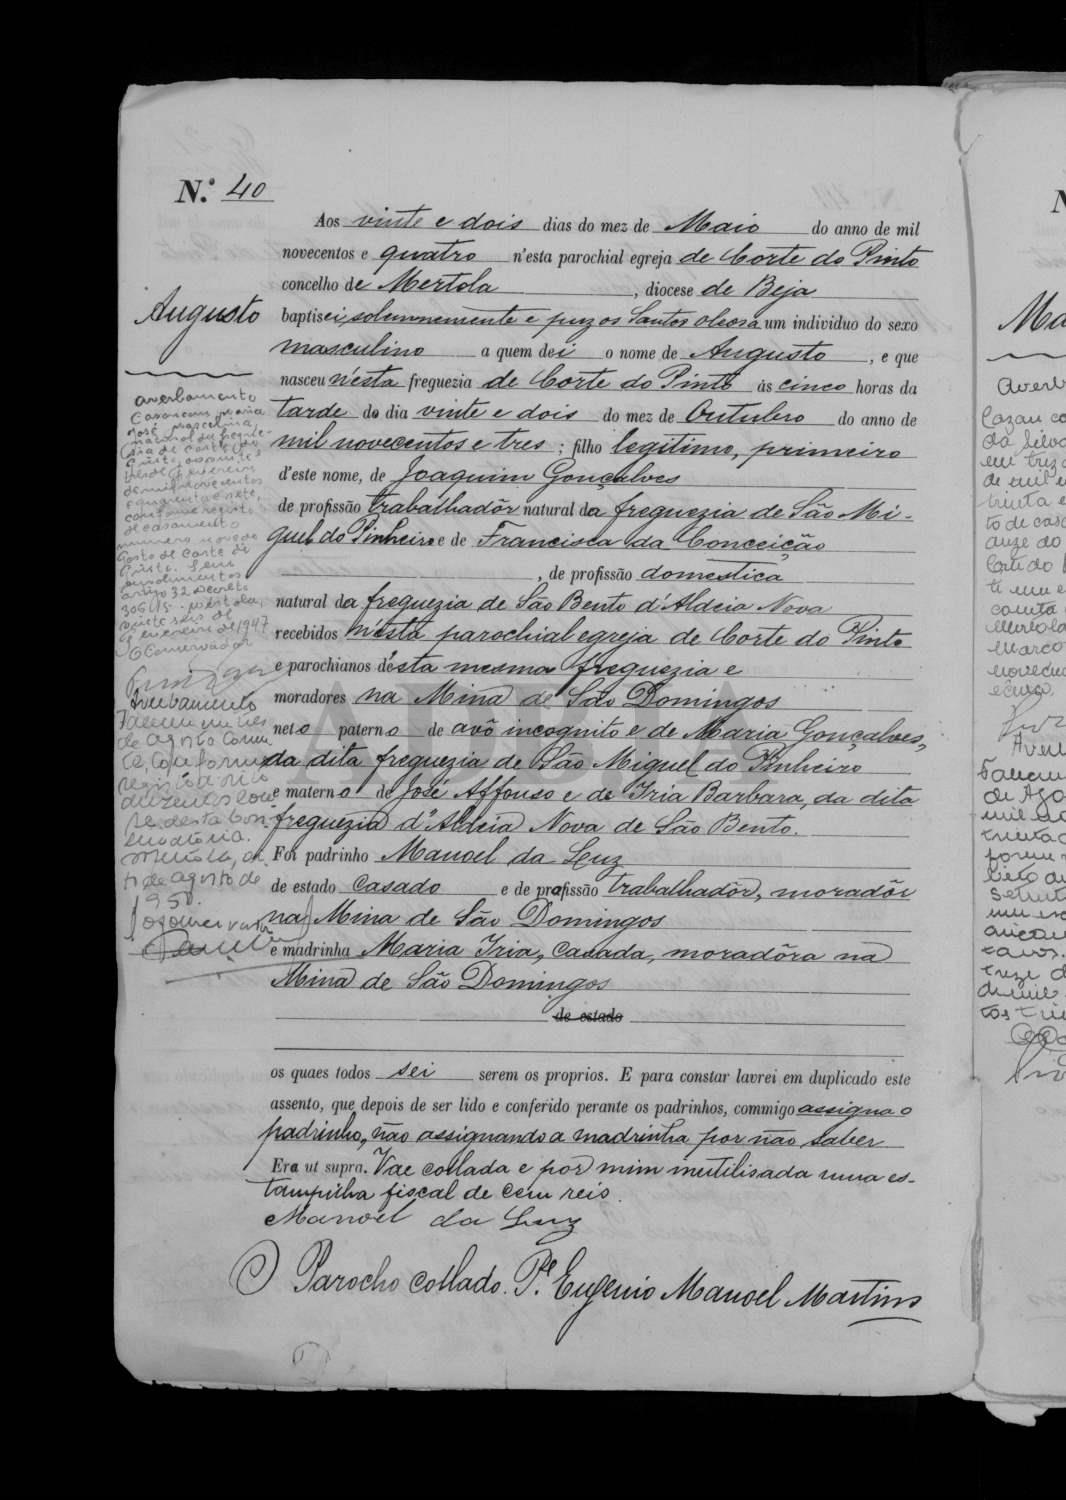 N.º 40
Aos vinte e dois dias do mez de Maio do anno de mil
novecentos e quatro n'esta parochial egreja de Corte do Pinto
concelho de Mertola, diocese de Beja
Augusto
baptisei solemnemente e puz os Santos Oleos a um individuo do sexo
masculino a quem dei o nome de Augusto, e que
nasceu n'esta freguezia de Corte do Pinto ás cinco horas da
tarde do dia vinte e dois do mez de Outubro do anno de
mil novecentos e tres; filho legitimo, primeiro
d'este nome, de Joaquim Gonçalves
de profissão trabalhadôr natural da freguezia de São Mi-
guel do Pinheiro e de Francisca da Conceição
, de profissão domestica
natural da freguezia de São Bento d'Aldeia Nova
recebidos n'esta parochial egreja de Corte do Pinto
e parochianos d'esta mesma freguezia e
moradores na Mina de São Domingos
neto paterno de avô incognito e de Maria Gonçalves,
da dita freguezia de São Miguel do Pinheiro
e materno de José Affonso e de Iria Barbara, da dita
freguezia d'Aldeia Nova de São Bento.
Foi padrinho Manoel da Luz
de estado casado e de profissão trabalhadôr, moradôr
na Mina de São Domingos
e madrinha Maria Iria, casada, moradôra na
Mina de São Domingos
de estado
os quaes todos sei serem os proprios. E para constar lavrei em duplicado este
assento, que depois de ser lido e conferido perante os padrinhos, commigo assigna o
padrinho, não assignando a madrinha por não saber
Era ut supra. Vae collada e por mim inutilisada uma es-
tampilha fiscal de cem reis.
Manoel da Luz
O Parocho collado. P.e Eugenio Manoel Martins
averbamento
Casou com Maria
José Marcelina,
natural da fregue-
sia de Corte do
Pinto, aos vinte e
tres de Janeiro
de mil novecentos
e quarenta e sete,
conforme registo
de casamento
numero nove do
Posto de Corte do
Pinto. Sem
emolumentos
artigo 32 Decreto
Mertola,
vinte seis de
Janeiro de 1947
O Conservador
Averbamento
Faleceu em tres
de agosto corren
te, conforme
registo
duzentos
desta Con-
servatória.
Mertola,
de agosto de
195